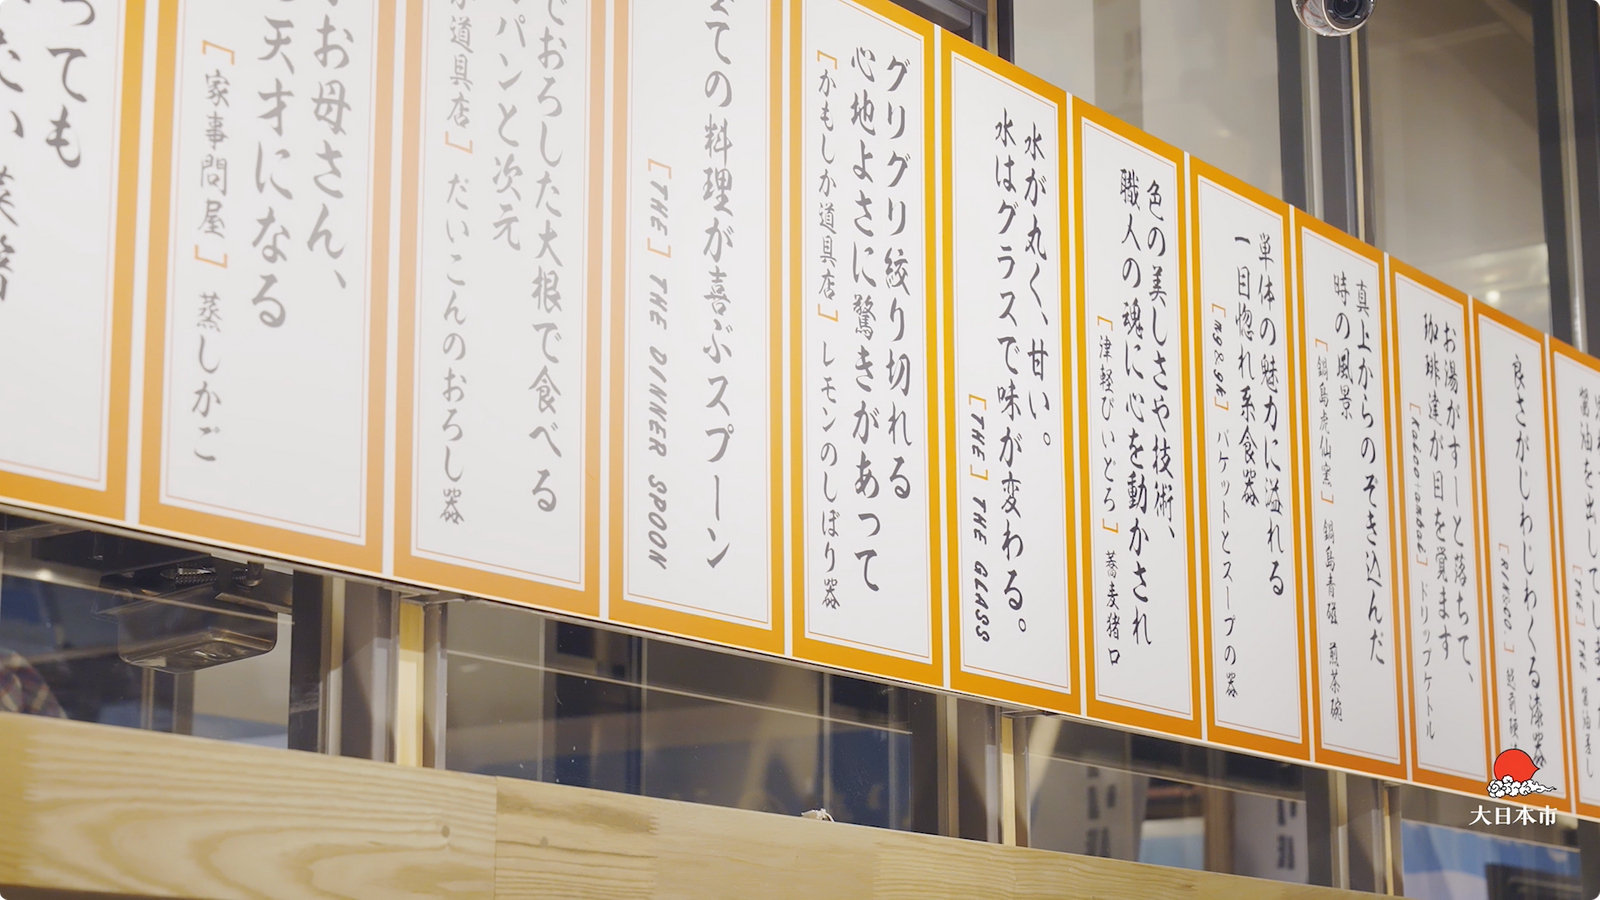 醤油を出して
[THE] THE 醤油差し
良さがじわじわくる漆器
[RIN&CO.] 越前硬漆
お湯がすーと落ちて、
珈琲達が目を覚ます
ドリップケトル
真上からのぞき込んだ
時の風景
[鍋島虎仙窯] 鍋島青磁 煎茶碗
単体の魅力に溢れる
一目惚れ系食器
バケットとスープの器
色の美しさや技術、
職人の魂に心を動かされ
[津軽びいどろ] 蕎麦猪口
水が丸く、甘い。
水はグラスで味が変わる。
[THE] THE GLASS
グリグリ絞り切れる
心地よさに驚きがあって
[かもしか道具店] レモンのしぼり器
ての料理が喜ぶスプーン
[THE] THE DINNER SPOON
でおろした大根で食べる
パンと次元
道具店] だいこんのおろし器
お母さん、
天才になる
[家事問屋] 蒸しかご
っても
たい
大日本市